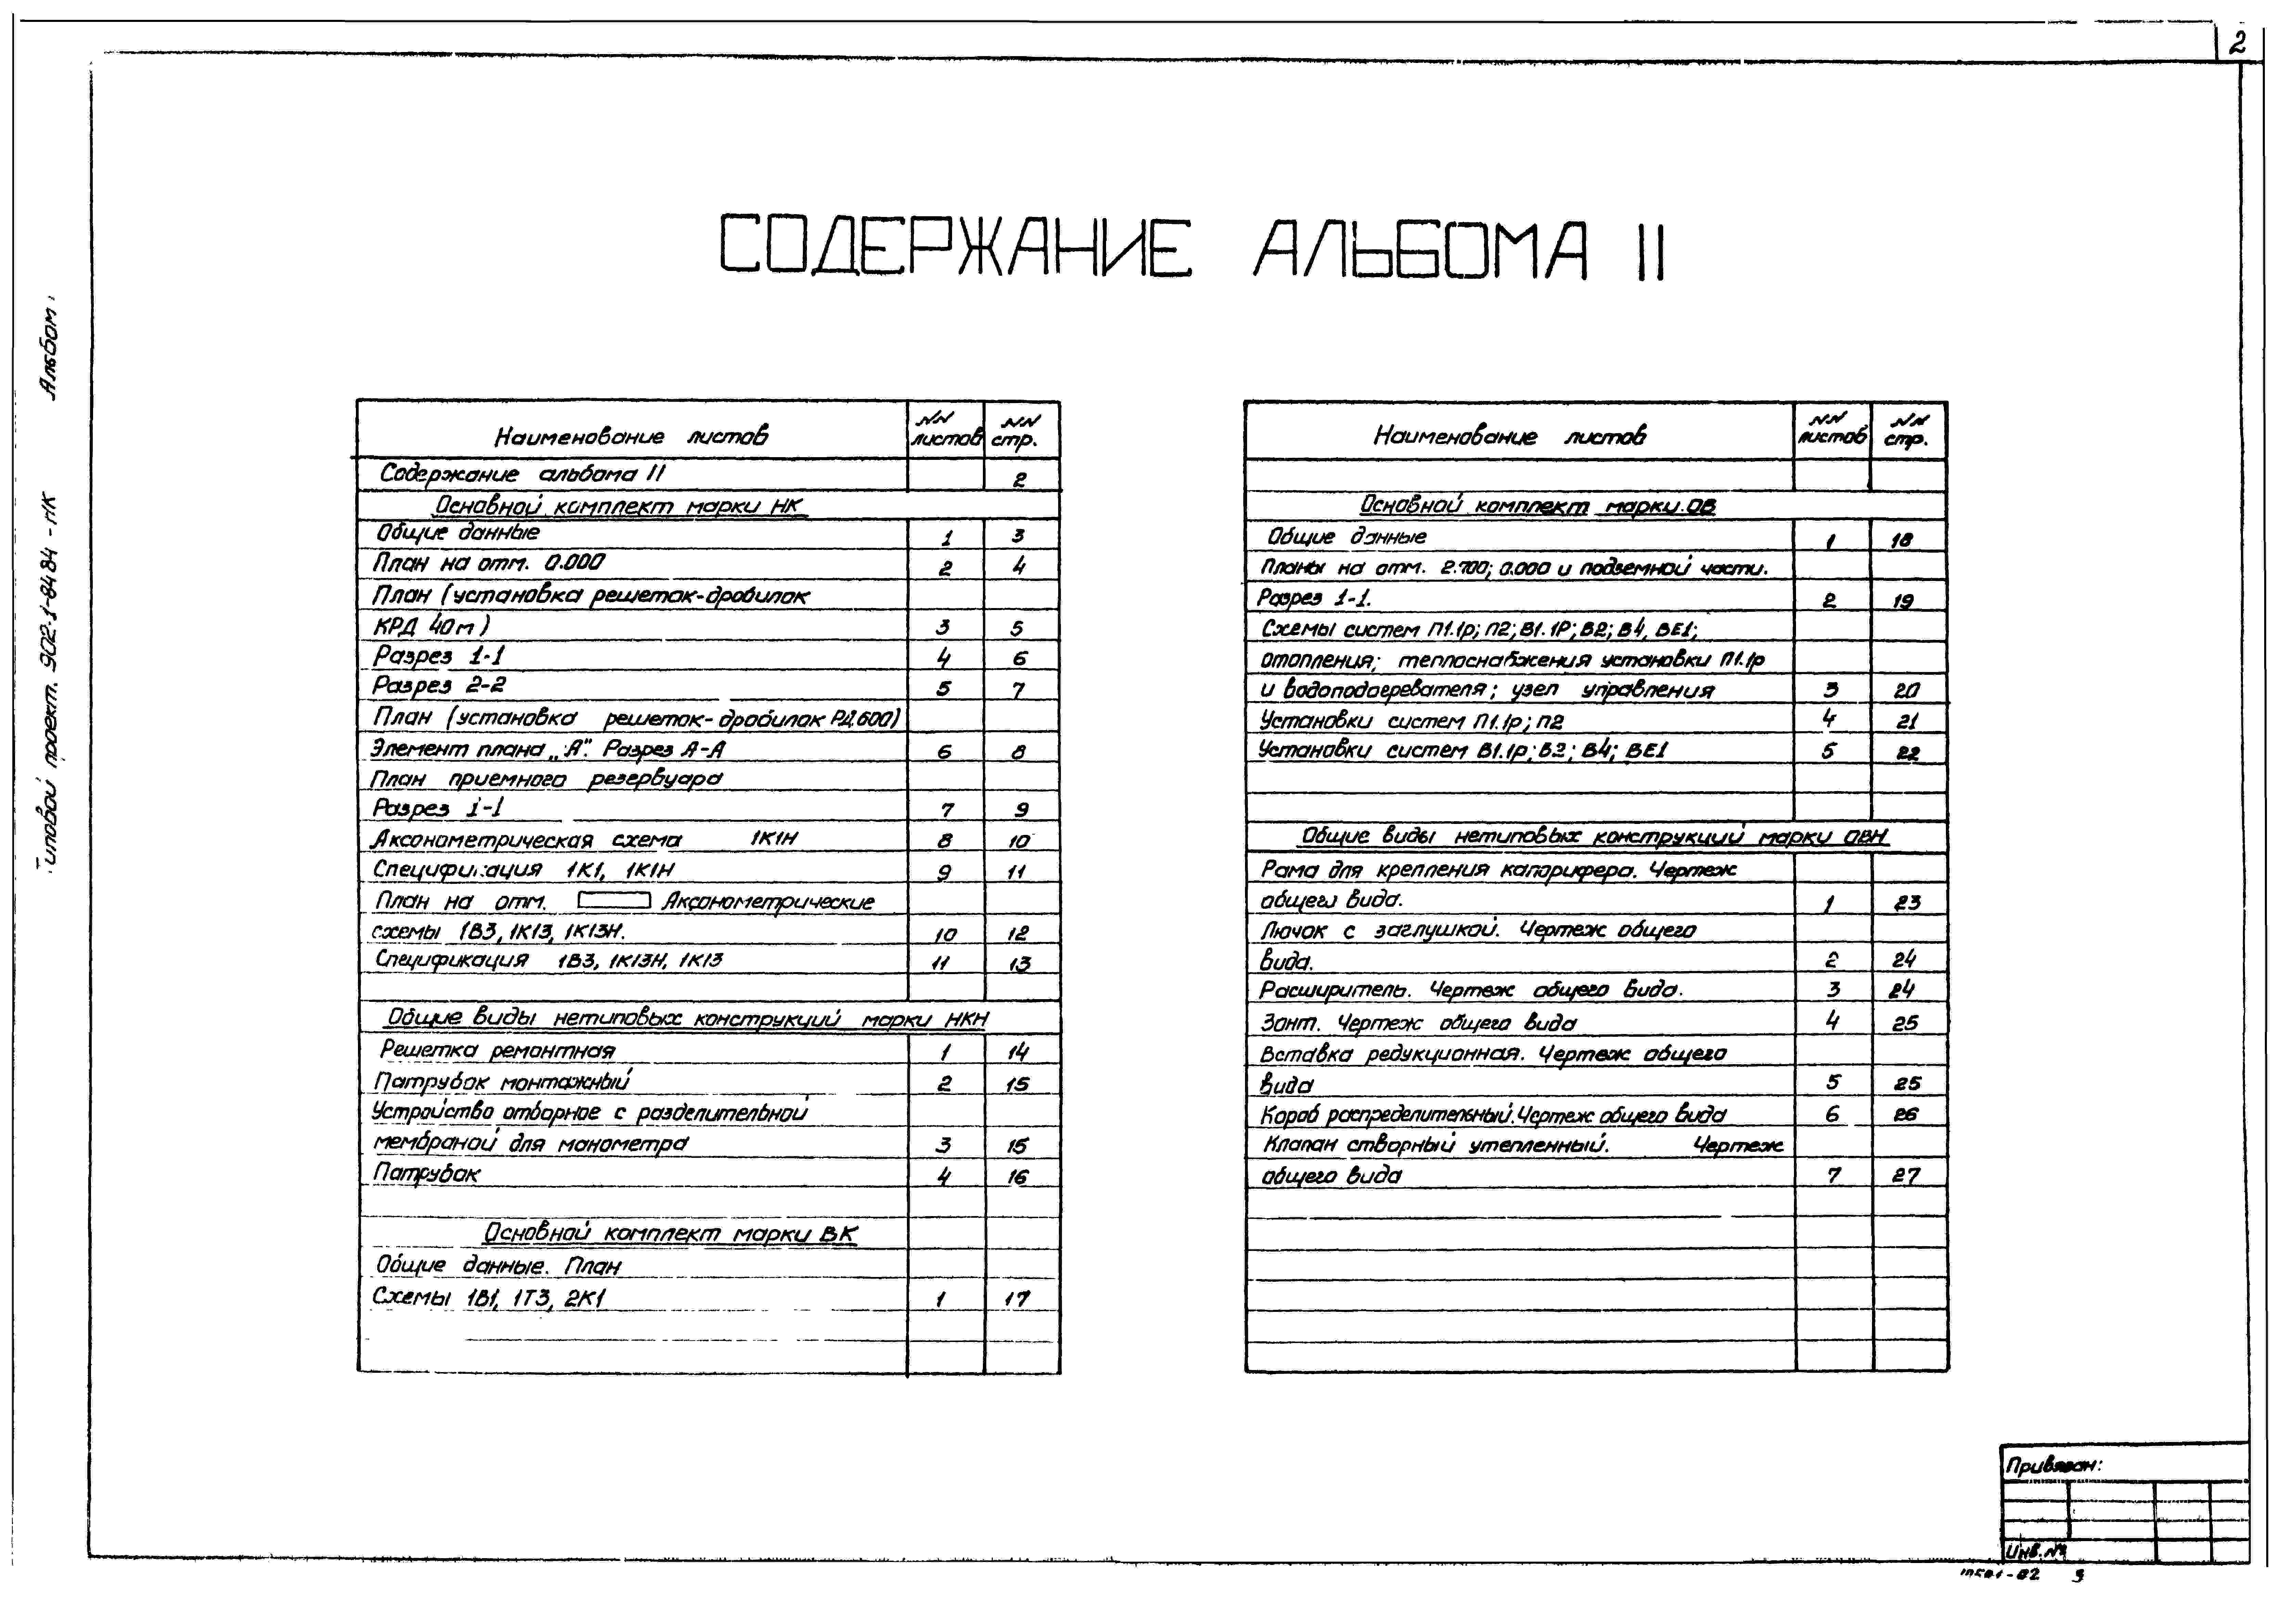 2
СОДЕРЖАНИЕ АЛЬБОМА II
Альбом
Типовой проект. 902-1-84 84 - НК
Наименование листов NN листов NN стр.
Содержание альбома II 2
Основной комплект марки НК
Общие данные 1 3
План на отм. 0.000 2 4
План (установка решеток-дробилок
КРД 40м) 3 5
Разрез 1-1 4 6
Разрез 2-2 5 7
План (установка решеток-дробилок РД 600)
Элемент плана „А". Разрез А-А 6 8
План приемного резервуара
Разрез 1-1 7 9
Аксонометрическая схема 1К1Н 8 10
Спецификация 1К1, 1К1Н 9 11
План на отм. Аксонометрические
схемы 1В3, 1К13, 1К13Н. 10 12
Спецификация 1В3, 1К13Н, 1К13 11 13
Общие виды нетиповых конструкций марки НКН
Решетка ремонтная 1 14
Патрубок монтажный 2 15
Устройство отборное с разделительной
мембраной для манометра 3 15
Патрубок 4 16
Основной комплект марки ВК
Общие данные. План
Схемы 1В1, 1Т3, 2К1 1 17
Наименование листов NN листов NN стр.
Основной комплект марки.ОВ
Общие данные 1 18
Планы на отм. 2.700; 0.000 и подземной части.
Разрез 1-1. 2 19
Схемы систем П1.1р; П2; В1.1Р; В2; В4, ВЕ1;
отопления; теплоснабжения установки П1.1р
и водоподогревателя; узел управления 3 20
Установки систем П1.1р; П2 4 21
Установки систем В1.1р; В2; В4; ВЕ1 5 22
Общие виды нетиповых конструкций марки ОВН
Рама для крепления калорифера. Чертеж
общего вида. 1 23
Лючок с заглушкой. Чертеж общего
вида. 2 24
Расширитель. Чертеж общего вида. 3 24
Зонт. Чертеж общего вида 4 25
Вставка редукционная. Чертеж общего
вида 5 25
Короб распределительный. Чертеж общего вида 6 26
Клапан створный утепленный. Чертеж
общего вида 7 27
Привязан:
Инв. №